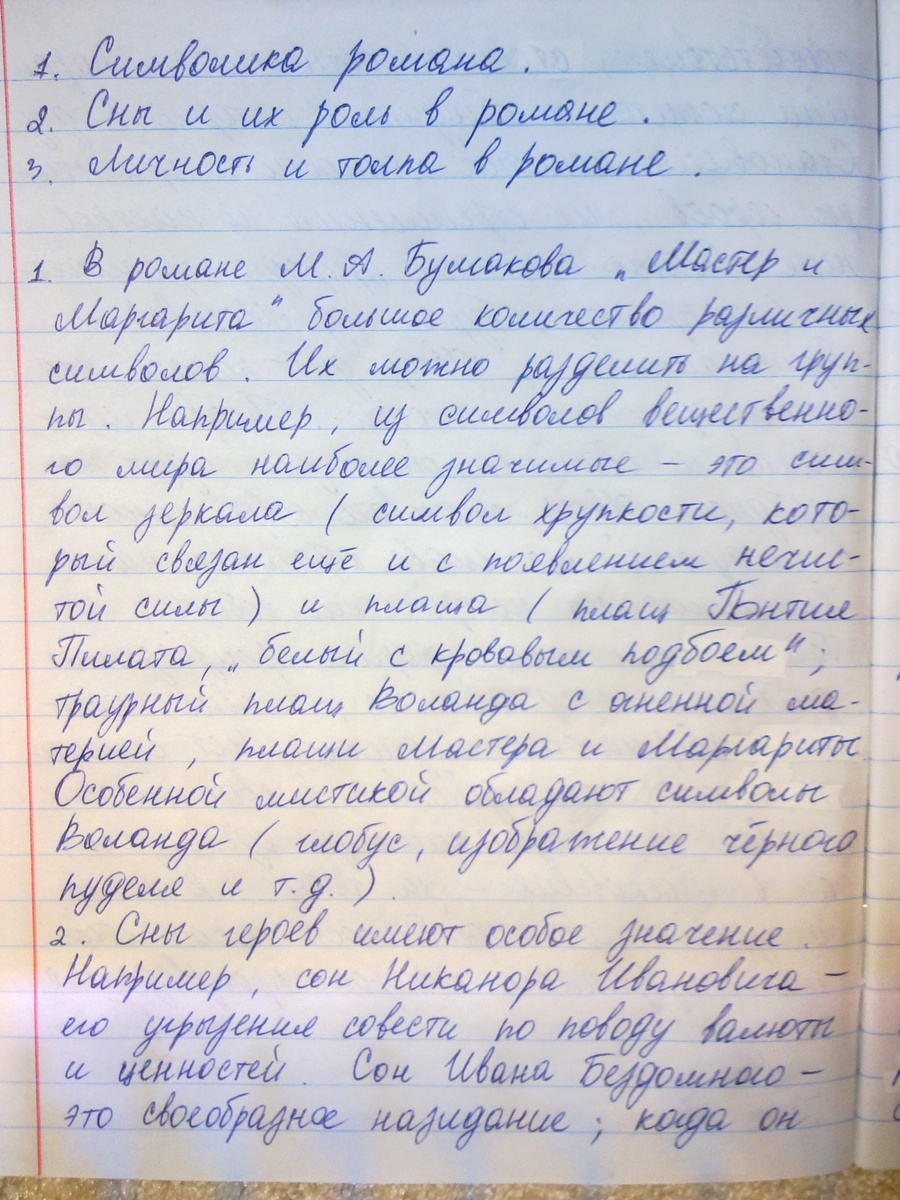 1. Символика романа.
2. Сны и их роль в романе.
3. Личность и толпа в романе.
1. В романе М. А. Бумакова „Мастер и
Маргарита" большое количество различных
символов. Их можно разделить на груп-
пы. Например, из символов вещественно-
го мира наиболее значимые – это сим-
вол зеркала (символ хрупкости, кото-
рый связан ещё и с появлением нечис-
той силы) и плаща (плащ Понтия
Пилата, „белый с кровавым подбоем";
траурный плащ Воланда с огненной ма-
терией, плащи Мастера и Маргариты
Особенной мистикой обладают символы
Воланда (глобус, изображение чёрного
пуделя и т.д.).
2. Сны героев имеют особое значение.
Например, сон Никанора Ивановича –
его угрызения совести по поводу валюты
и ценностей. Сон Ивана Бездомного –
это своеобразное назидание; когда он